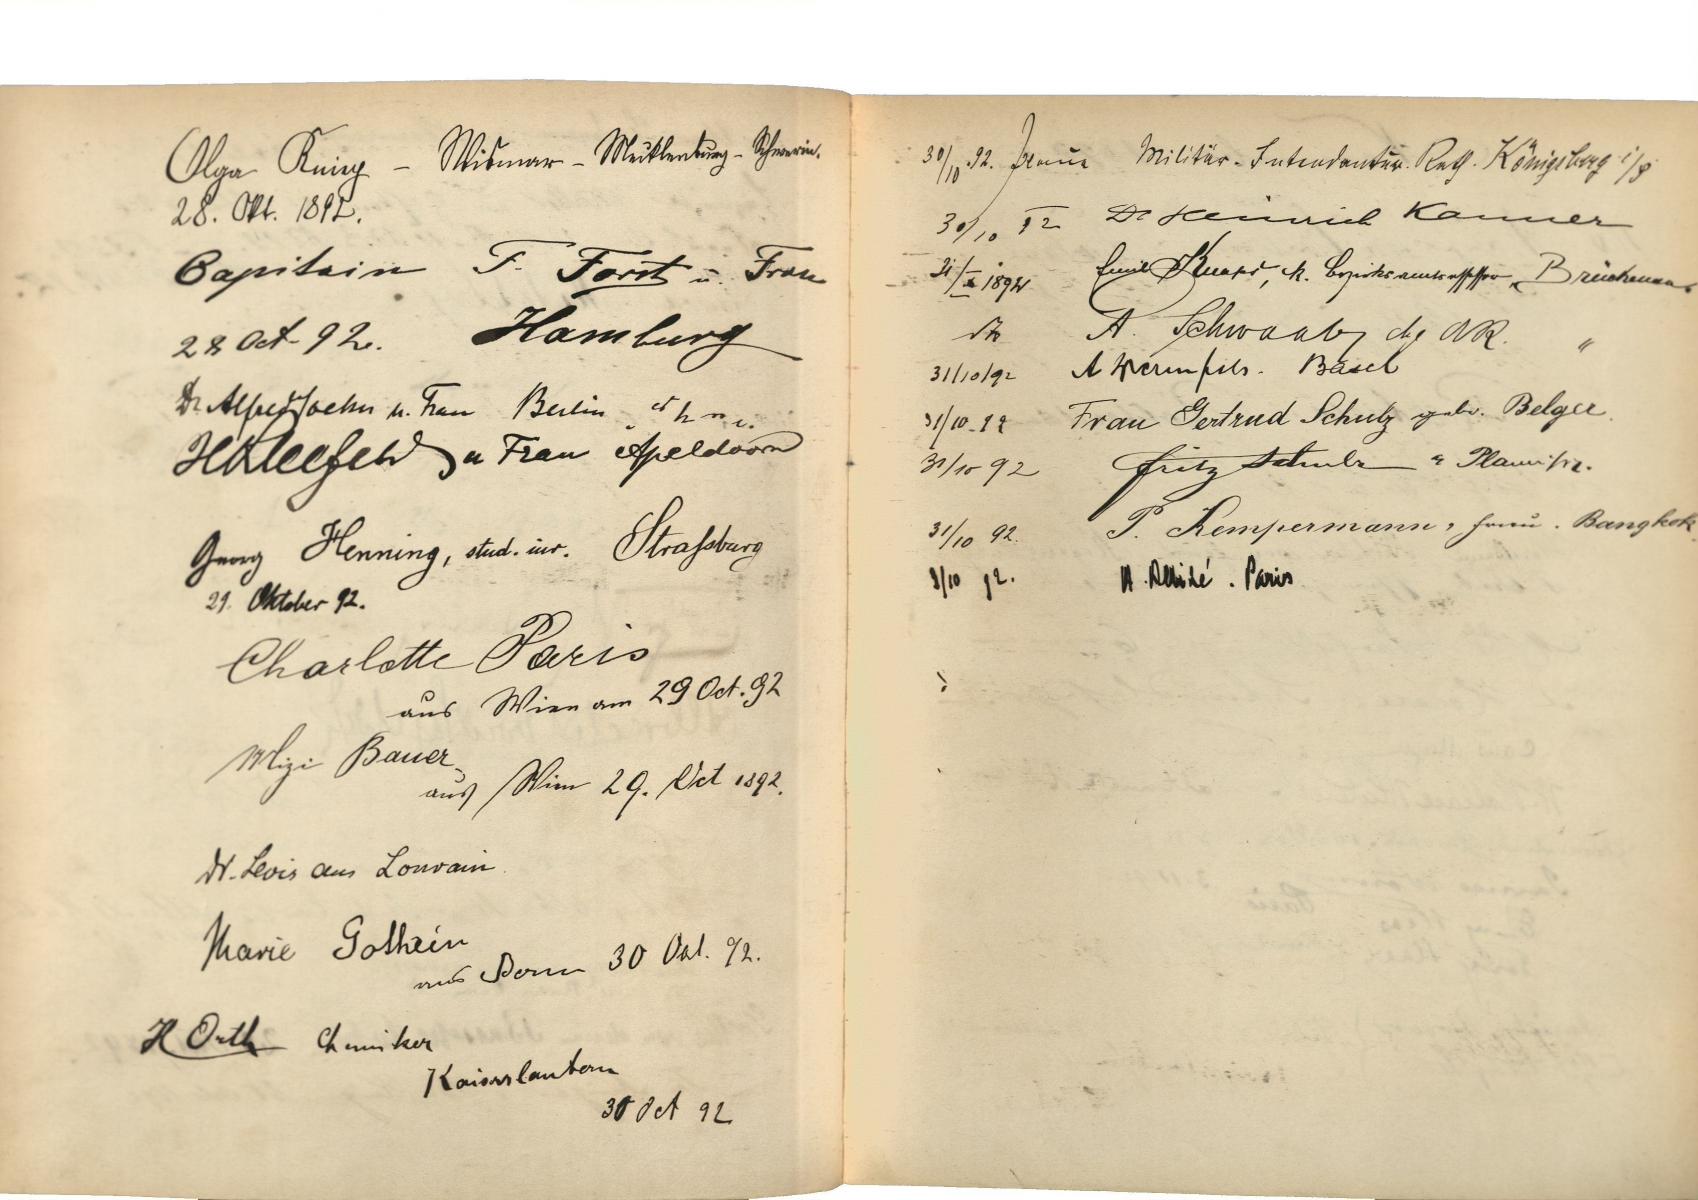 Olga – Wismar – Mecklenburg – Schwerin.
28. Okt. 1892.
Capitain F. Forst u. Frau
28 Oct. 92. Hamburg
Dr Alfred u. Frau Berlin
u Frau Apeldoorn
Georg Henning, stud. iur. Straßburg
29. Oktober 92.
Charlotte Paris
aus Wien am 29 Oct. 92
Mizi Bauer
aus Wien 29. Oct 1892.
Dr. Levis aus Louvain
Marie Gothein
aus Bonn 30 Oct. 92.
H Orth Chemiker
Kaiserslautern
30 Oct 92
30/10. 92. Militär-Intendantur-Rath. Königsberg i/P
30/10 92 Dr Heinrich Kanner
31/X 1892 Emil k. Bezirksamtsassessor, Brückenau
A. Schwaab "
31/10/92 A Werenfels. Basel
31/10. 92 Frau Gertrud Schulz geb. Belger
31/10 92 Fritz Schulz
31/10 92. P. Kempermann, Bangkok
3/10 92. Paris